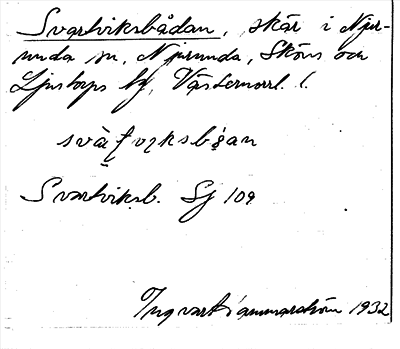 Svartviksbådan, skär i Njur-
unda sn, Njurunda, Sköns och
Ljustorps tg, Västernorrl. l.
Svartviksb. Sj 109
Ingvar Hammarström 1932